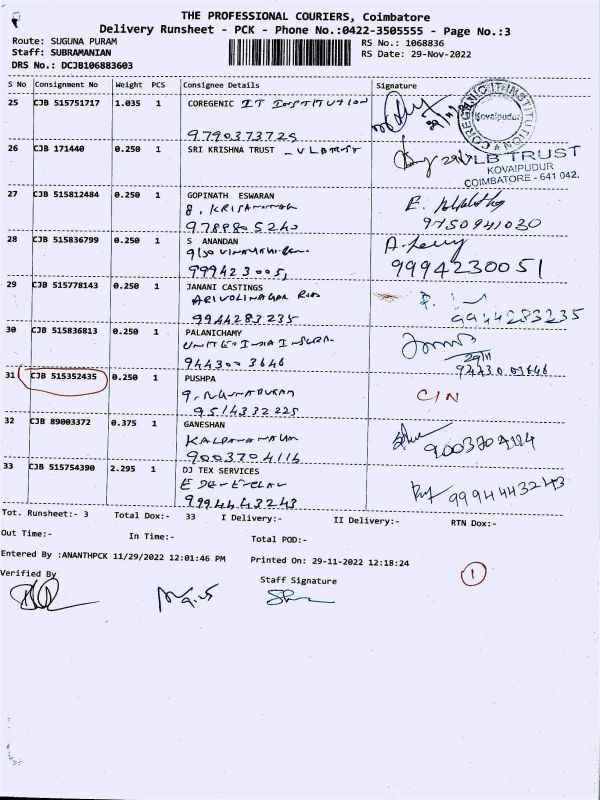 THE PROFESSIONAL COURIERS, Coimbatore
Delivery Runsheet - PCK - Phone No.:0422-3505555 - Page No.:3
Route: SUGUNA PURAM
RS No.: 1068836
Staff: SUBRAMANIAN
RS Date: 29-Nov-2022
DRS No.: DCJB106883603
S No Consignment No Weight PCS Consignee Details Signature
25 CJB 515751717 1.035 1 COREGENIC IT INSTITUTION
9790373725
COREGENIC IT INSTITUTION
Kovaipudur
26 CJB 171440 0.250 1 SRI KRISHNA TRUST - VLB TRUST
VLB TRUST
KOVAIPUDUR
COIMBATORE - 641 042.
27 CJB 515812484 0.250 1 GOPINATH ESWARAN
9788805240
9750941030
28 CJB 515836799 0.250 1 S ANANDAN
9994230051
9994230051
29 CJB 515778143 0.250 1 JANANI CASTINGS
ARIVOLINAGAR ROAD
9944283235
9944283235
30 CJB 515836813 0.250 1 PALANICHAMY
UNITED INDIA INSURA.
9443003646
29/11
9443003646
31 CJB 515352435 0.250 1 PUSHPA
9514332225
C/N
32 CJB 89003372 0.375 1 GANESHAN
9003704114
33 CJB 515754390 2.295 1 DJ TEX SERVICES
9994443243
9994443243
Tot. Runsheet:- 3 Total Dox:- 33 I Delivery:- II Delivery:- RTN Dox:-
Out Time:- In Time:- Total POD:-
Entered By :ANANTHPCK 11/29/2022 12:01:46 PM Printed On: 29-11-2022 12:18:24
1
Verified By Staff Signature